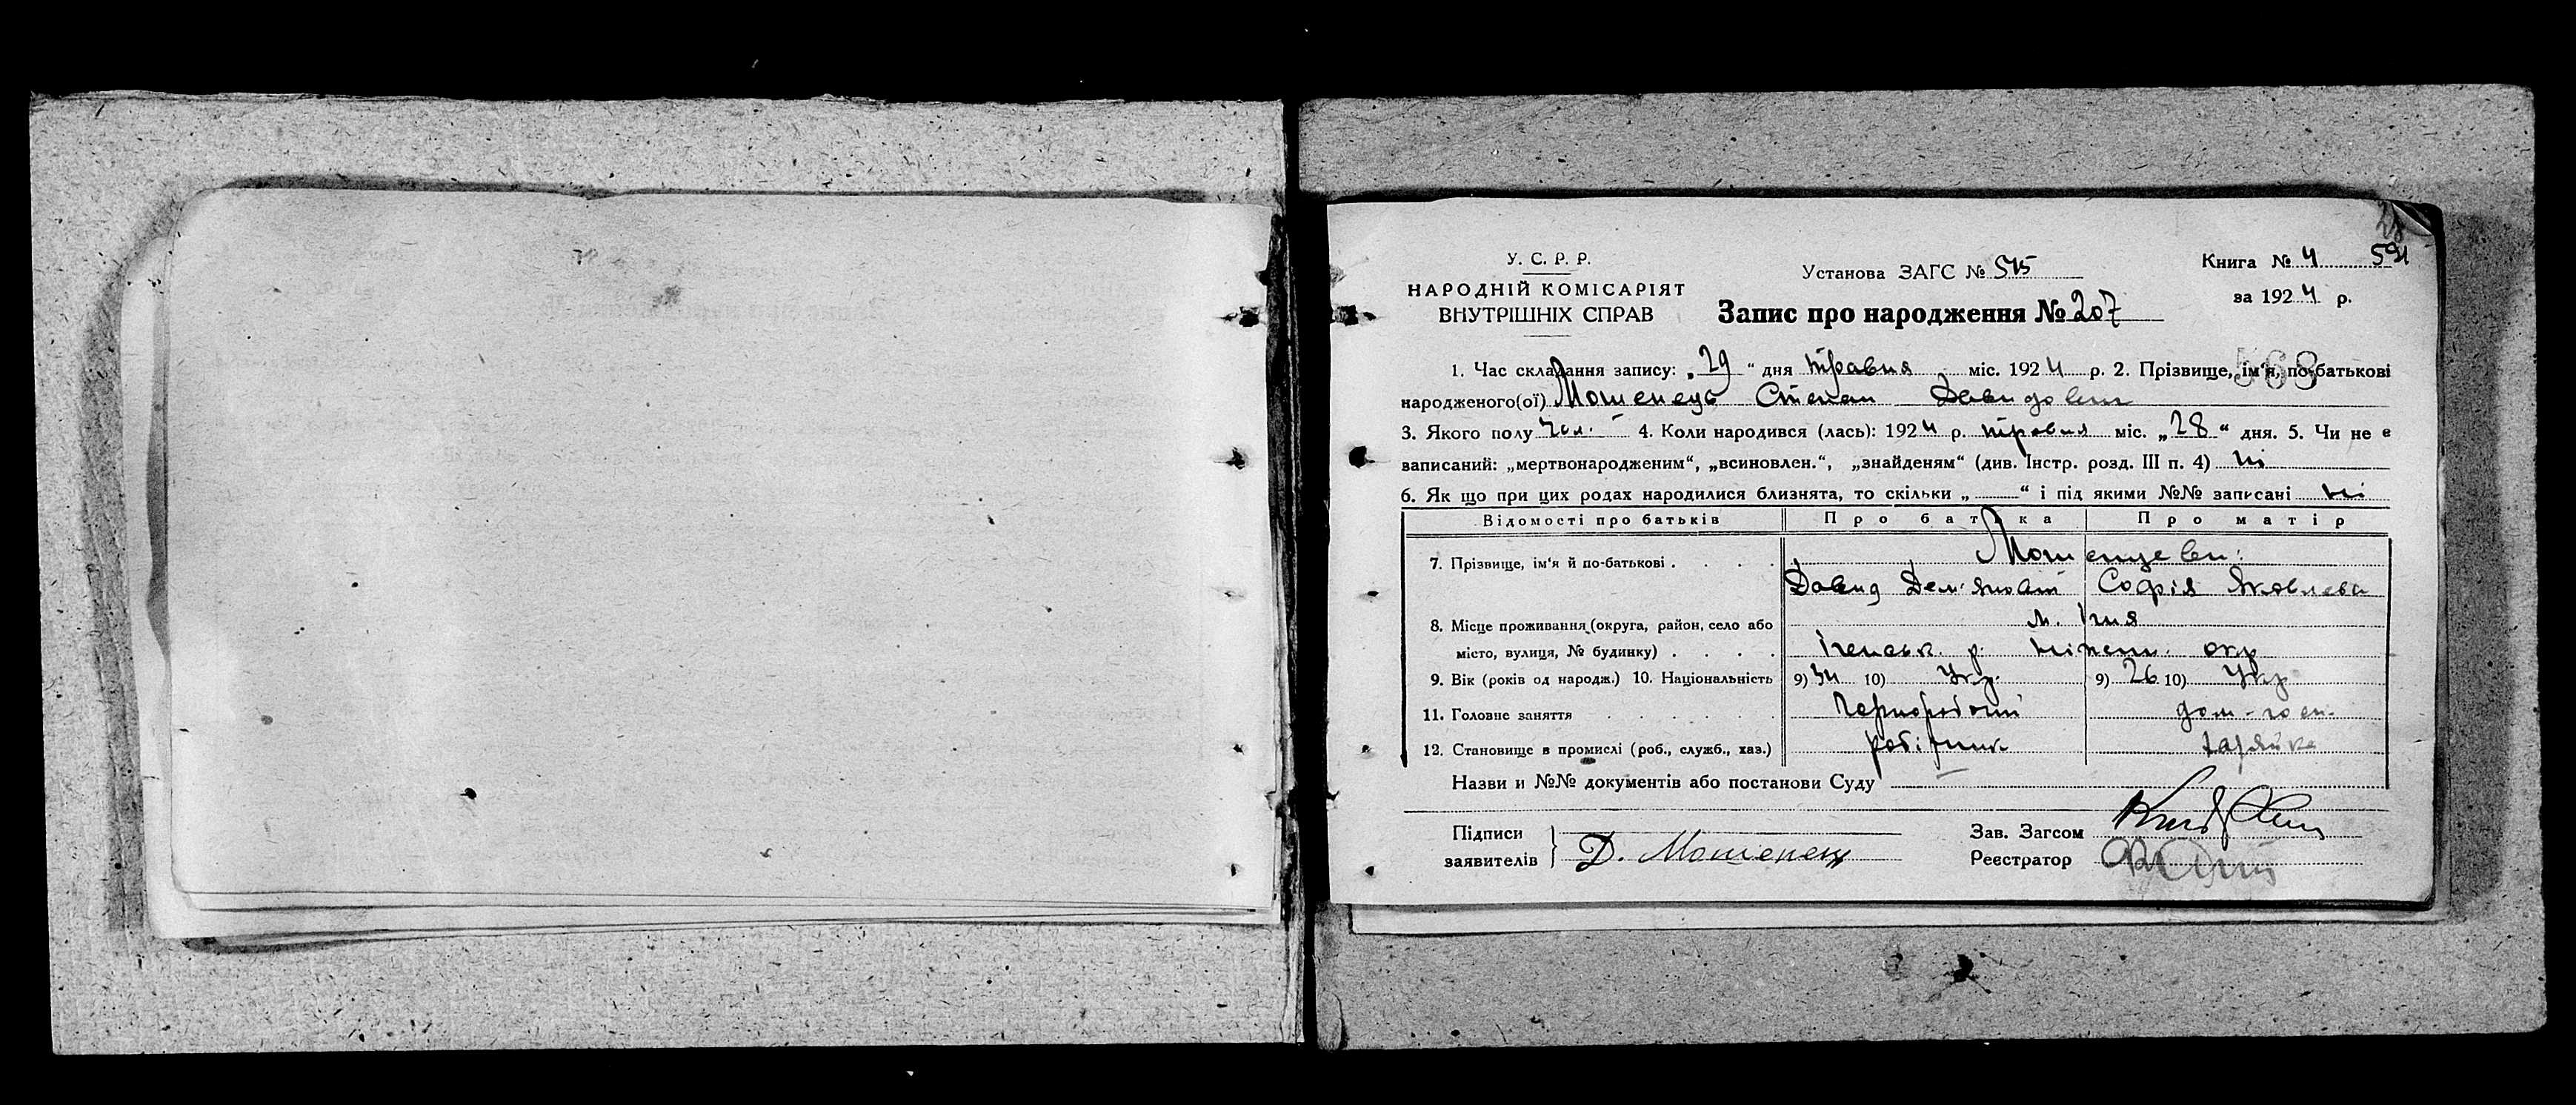 28
У. С. Р. Р.
НАРОДНІЙ КОМІСАРІЯТ
ВНУТРІШНІХ СПРАВ
Установа ЗАГС № 515
Книга № 4 591
за 1924 р.
Запис про народження № 207
568
1. Час складання запису: „29“ дня травня міс. 1924 р. 2. Прізвище, ім'я, по-батькові
народженого(ої) Мошенець Степан Давидович
3. Якого полу Чол. 4. Коли народився (лась): 1924 р. травня міс. „28“ дня. 5. Чи не є
записаний: „мертвонародженим“, „всиновлен.“, „знайденям“ (див. Інстр. розд. III п. 4) ні
6. Як що при цих родах народилися близнята, то скільки „ “ і під якими №№ записані ні
Відомості про батьків Про батька Про матір
7. Прізвище, ім'я й по-батькові . . . .
Давид Дем'янович Софія Яковлевн
8. Місце проживання (округа, район, село або м.
місто, вулиця, № будинку) . . . . р. окр
9. Вік (років од народж.) 10. Національність 9) 34 10) Укр. 9) 26 10) Укр
11. Головне заняття . . . . . . Чорноробочий дом-госп-
12. Становище в промислі (роб., служб., хаз.) робітник
Назви и №№ документів або постанови Суду
Підписи
заявителів Д. Мошенець
Зав. Загсом
Реєстратор